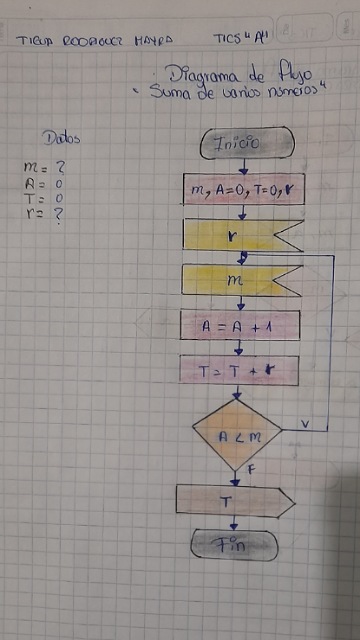 TIGUA RODRIGUEZ MAYRA TICS "A"
Diagrama de flujo
"Suma de varios números"
Datos
m = ?
A = 0
T = 0
r = ?
Inicio
m, A=0, T=0, r
r
m
A = A + 1
T = T + r
A < M
V
F
T
Fin